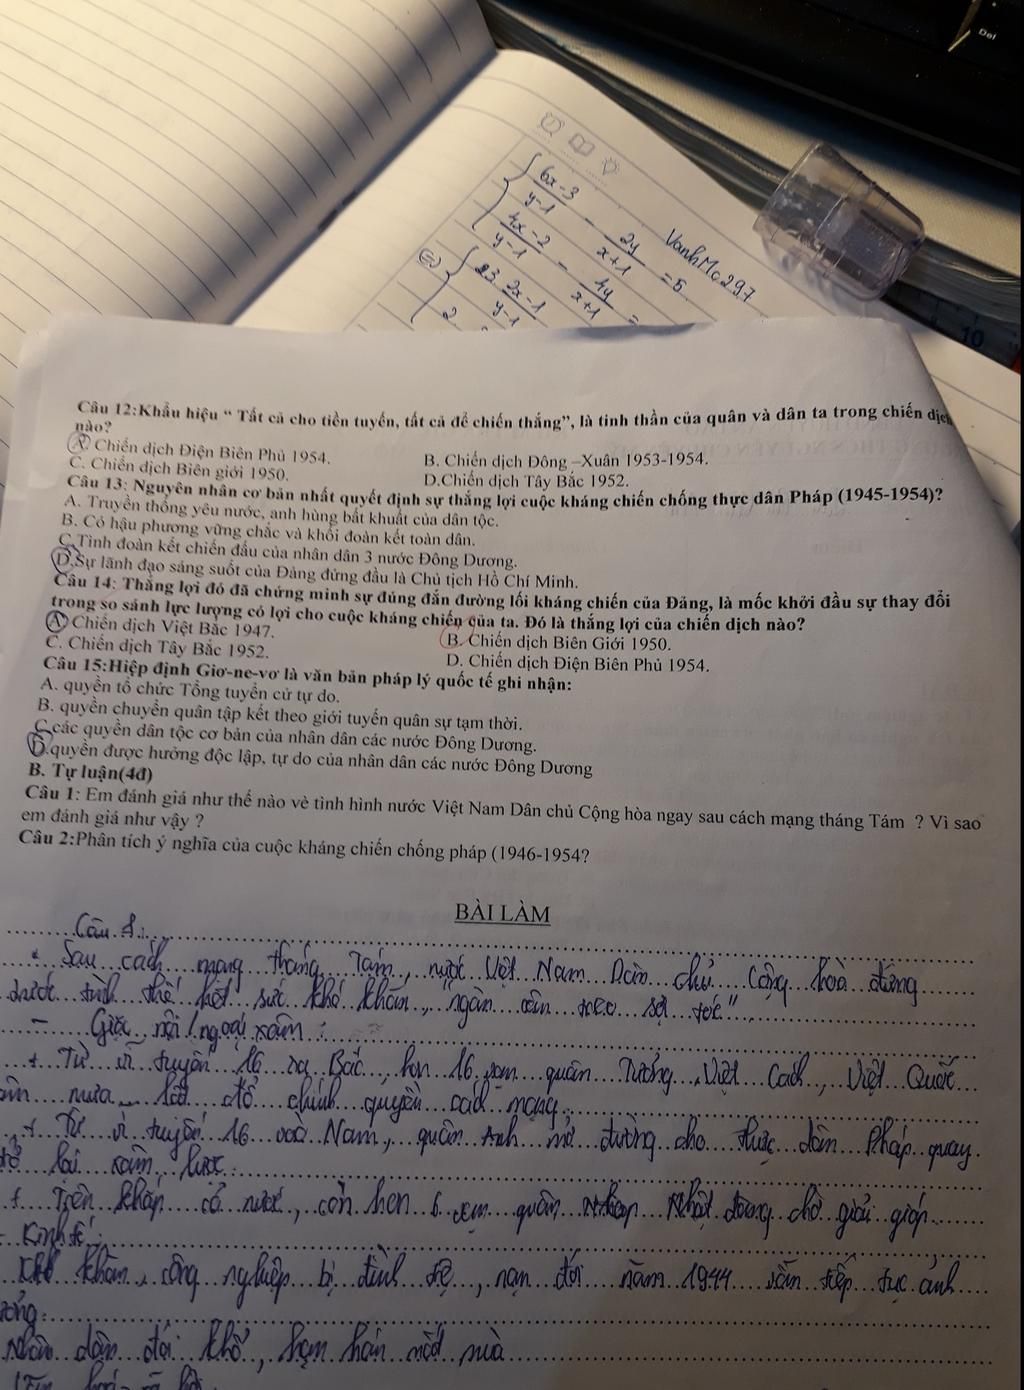 Del
10
6x-3 / y-1 - 2y / x+1 = 5
4x-2 / y-1 - 4y / x+1 =
2x-1 / y-1
2
VanhMc297
Câu 12:Khẩu hiệu “ Tất cả cho tiền tuyến, tất cả để chiến thắng”, là tinh thần của quân và dân ta trong chiến dịch
nào?
A. Chiến dịch Điện Biên Phủ 1954. B. Chiến dịch Đông –Xuân 1953-1954.
C. Chiến dịch Biên giới 1950. D.Chiến dịch Tây Bắc 1952.
Câu 13: Nguyên nhân cơ bản nhất quyết định sự thắng lợi cuộc kháng chiến chống thực dân Pháp (1945-1954)?
A. Truyền thống yêu nước, anh hùng bất khuất của dân tộc.
B. Có hậu phương vững chắc và khối đoàn kết toàn dân.
C.Tình đoàn kết chiến đấu của nhân dân 3 nước Đông Dương.
D.Sự lãnh đạo sáng suốt của Đảng đứng đầu là Chủ tịch Hồ Chí Minh.
Câu 14: Thắng lợi đó đã chứng minh sự đúng đắn đường lối kháng chiến của Đảng, là mốc khởi đầu sự thay đổi
trong so sánh lực lượng có lợi cho cuộc kháng chiến của ta. Đó là thắng lợi của chiến dịch nào?
A. Chiến dịch Việt Bắc 1947. B. Chiến dịch Biên Giới 1950.
C. Chiến dịch Tây Bắc 1952. D. Chiến dịch Điện Biên Phủ 1954.
Câu 15:Hiệp định Giơ-ne-vơ là văn bản pháp lý quốc tế ghi nhận:
A. quyền tổ chức Tổng tuyển cử tự do.
B. quyền chuyển quân tập kết theo giới tuyến quân sự tạm thời.
C.các quyền dân tộc cơ bản của nhân dân các nước Đông Dương.
D.quyền được hưởng độc lập, tự do của nhân dân các nước Đông Dương
B. Tự luận(4đ)
Câu 1: Em đánh giá như thế nào vè tình hình nước Việt Nam Dân chủ Cộng hòa ngay sau cách mạng tháng Tám ? Vì sao
em đánh giá như vậy ?
Câu 2:Phân tích ý nghĩa của cuộc kháng chiến chống pháp (1946-1954?
BÀI LÀM
Câu 1:
* Sau cách mạng tháng Tám, nước Việt Nam Dân chủ Cộng hoà đứng
trước tình thế hết sức khó khăn, "ngàn cân treo sợi tóc"
- Giặc nội/ngoại xâm :
+ Từ vĩ tuyến 16 ra Bắc, hơn 16 vạn quân Tưởng, Việt Cách, Việt Quốc
nưa lật đổ chính quyền cách mạng.
+ Từ vĩ tuyến 16 vào Nam, quân Anh mở đường cho thực dân Pháp quay
trở lại xâm lược.
+ Trên khắp cả nước, còn hơn 6 vạn quân Nhật đang chờ giải giáp
- Kinh tế:
Khó khăn, công nghiệp bị đình trệ, nạn đói năm 1944 vẫn tiếp tục ảnh
Nhân dân đói khổ, hạn hán mất mùa